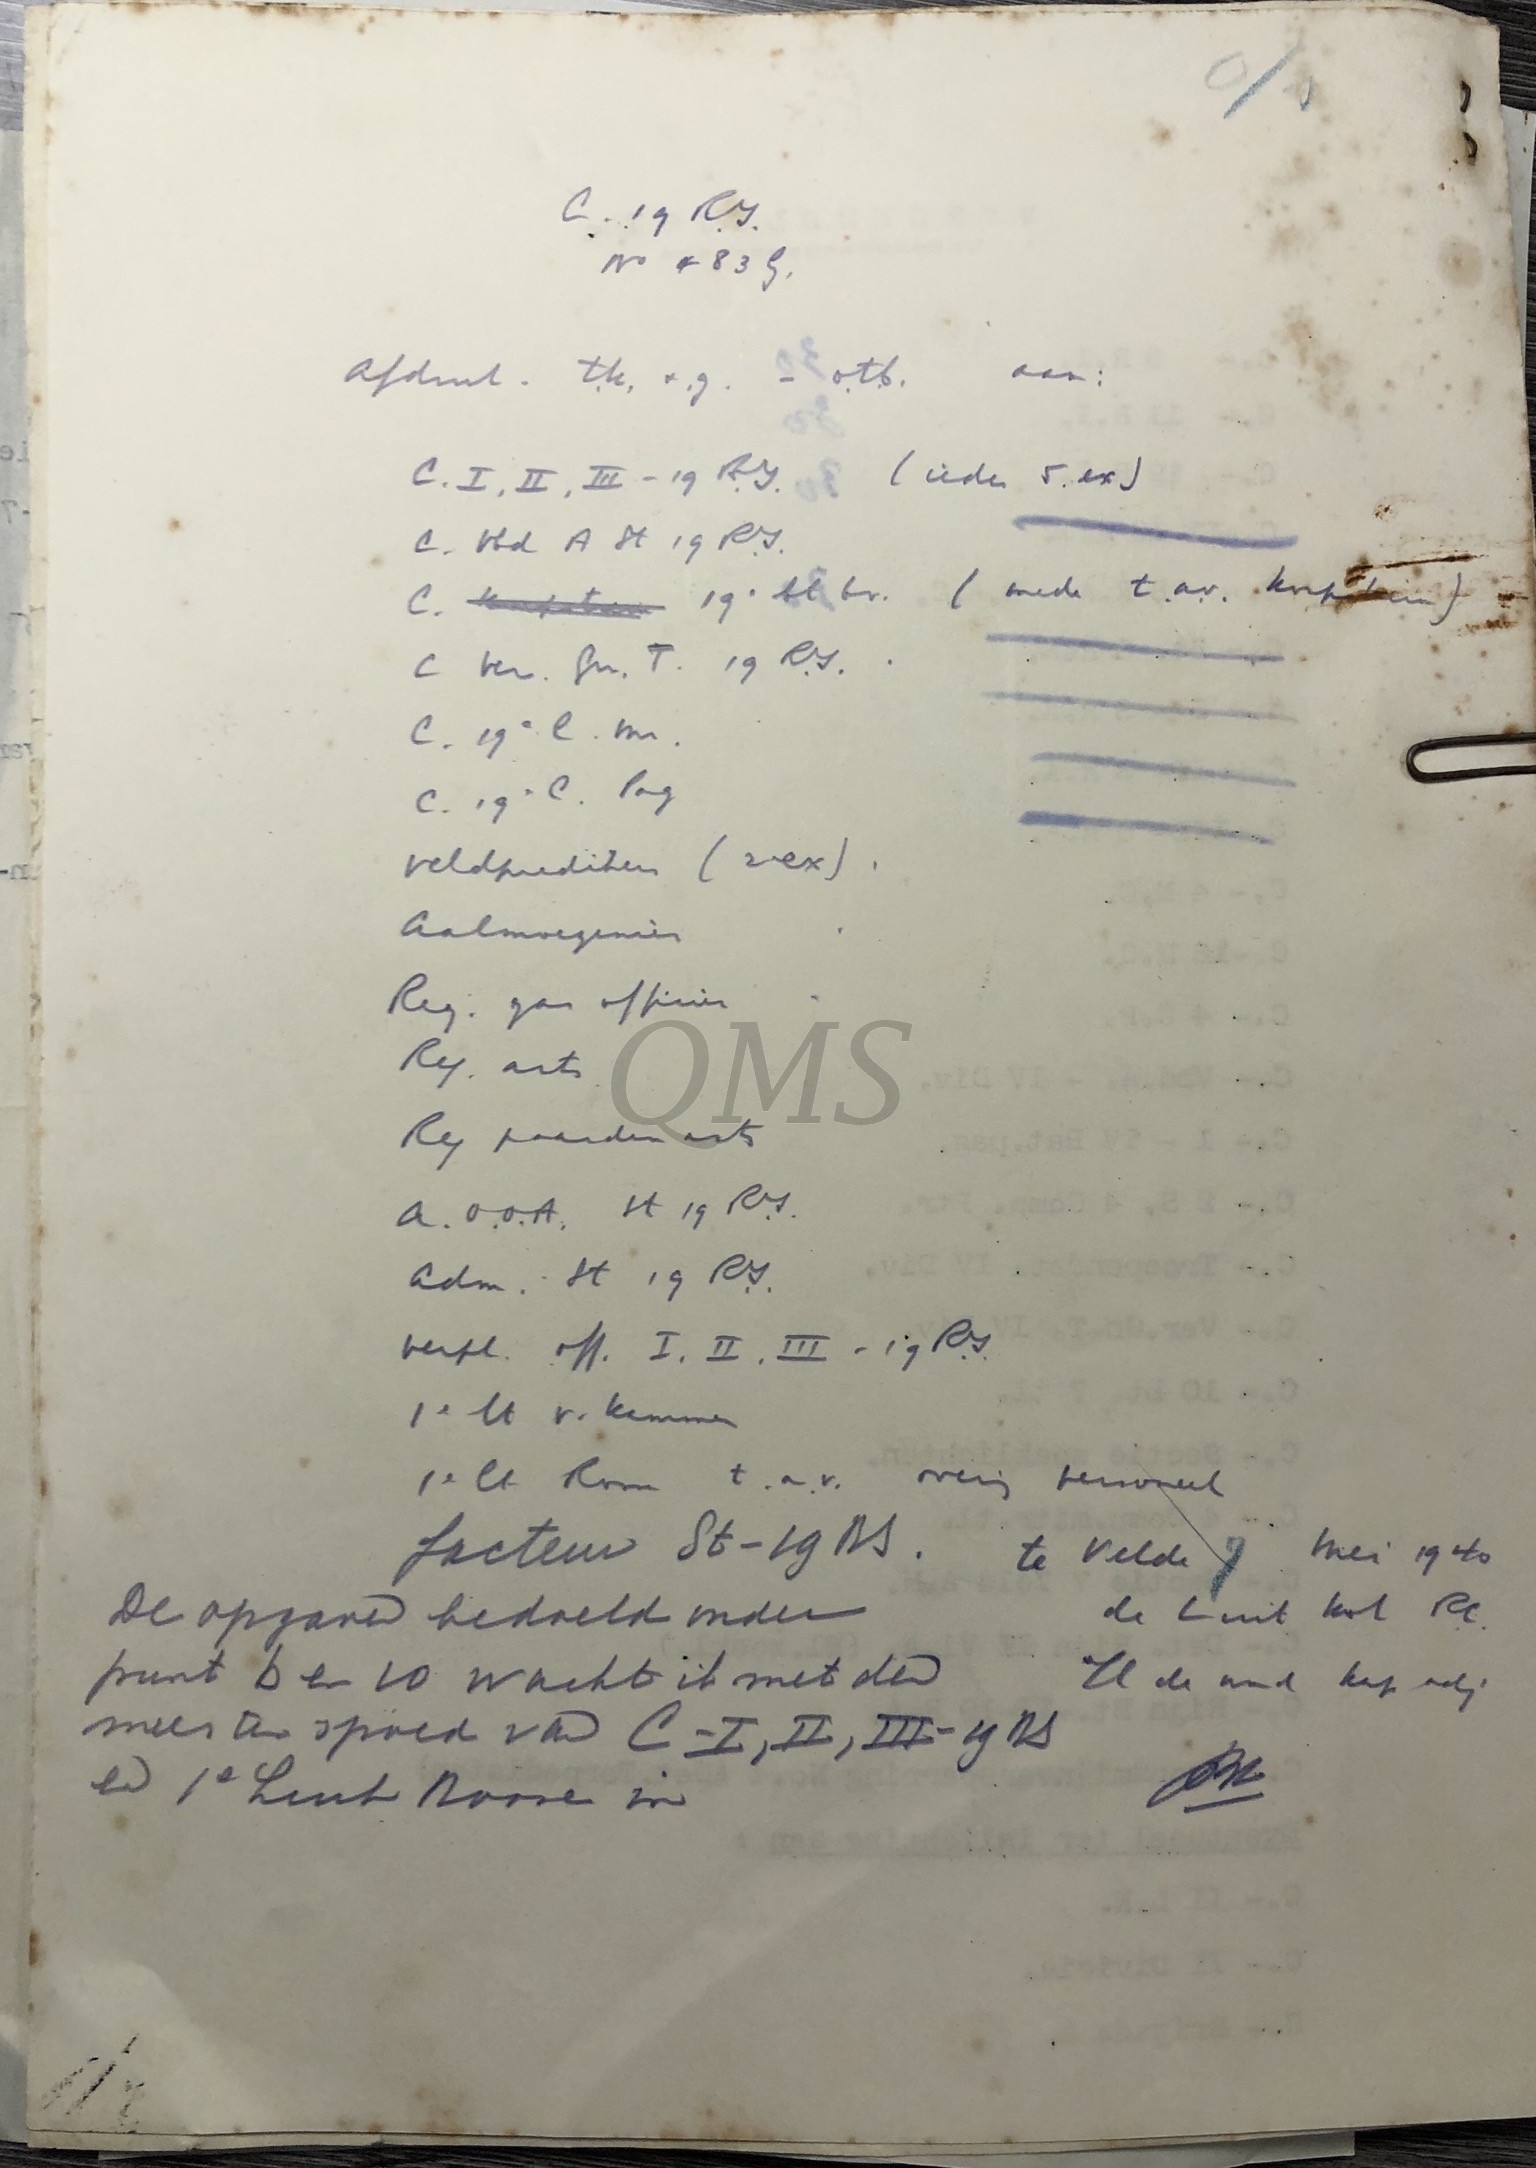 C. 19 R.I.
No 483 G.
Afdruk. t.k. e.g. - o.t.b. aan:
C. I, II, III - 19 R.I. (ieder 5 ex)
C. Vbd A St 19 R.I.
C. 19e bt br. (mede t.a.v. kapitein)
C Ver. Gn. T. 19 R.I.
C. 19e C. Mr.
C. 19e C. Pag
Veldprediker (2 ex).
Aalmoezenier
Reg. gas officier
Reg. arts
Reg paardenarts
A.O.O.A. St 19 R.I.
Adm. St 19 R.I.
Verpl. off. I, II, III - 19 R.I.
1e lt v. Kammen
1e lt Room t.a.v. overig personeel
facteur St-19 RI.
te Velde 9 Mei 1940
De opgaven bedoeld onder
de Luit kol Rc.
punt b en 10 wacht ik met den
meesten spoed van C-I, II, III-19 RI
en 1e Luit Room in
QMS